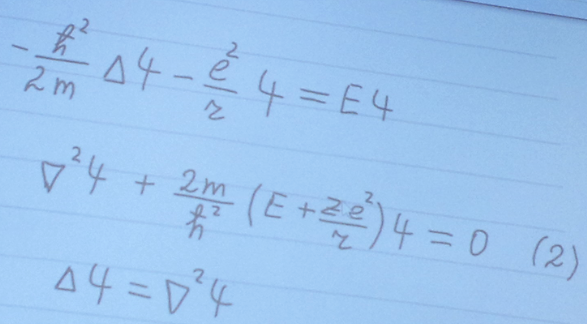 -ħ²/2m Δψ - e²/r ψ = Eψ
∇²ψ + 2m/ħ² (E + Ze²/r)ψ = 0 (2)
Δψ = ∇²ψ